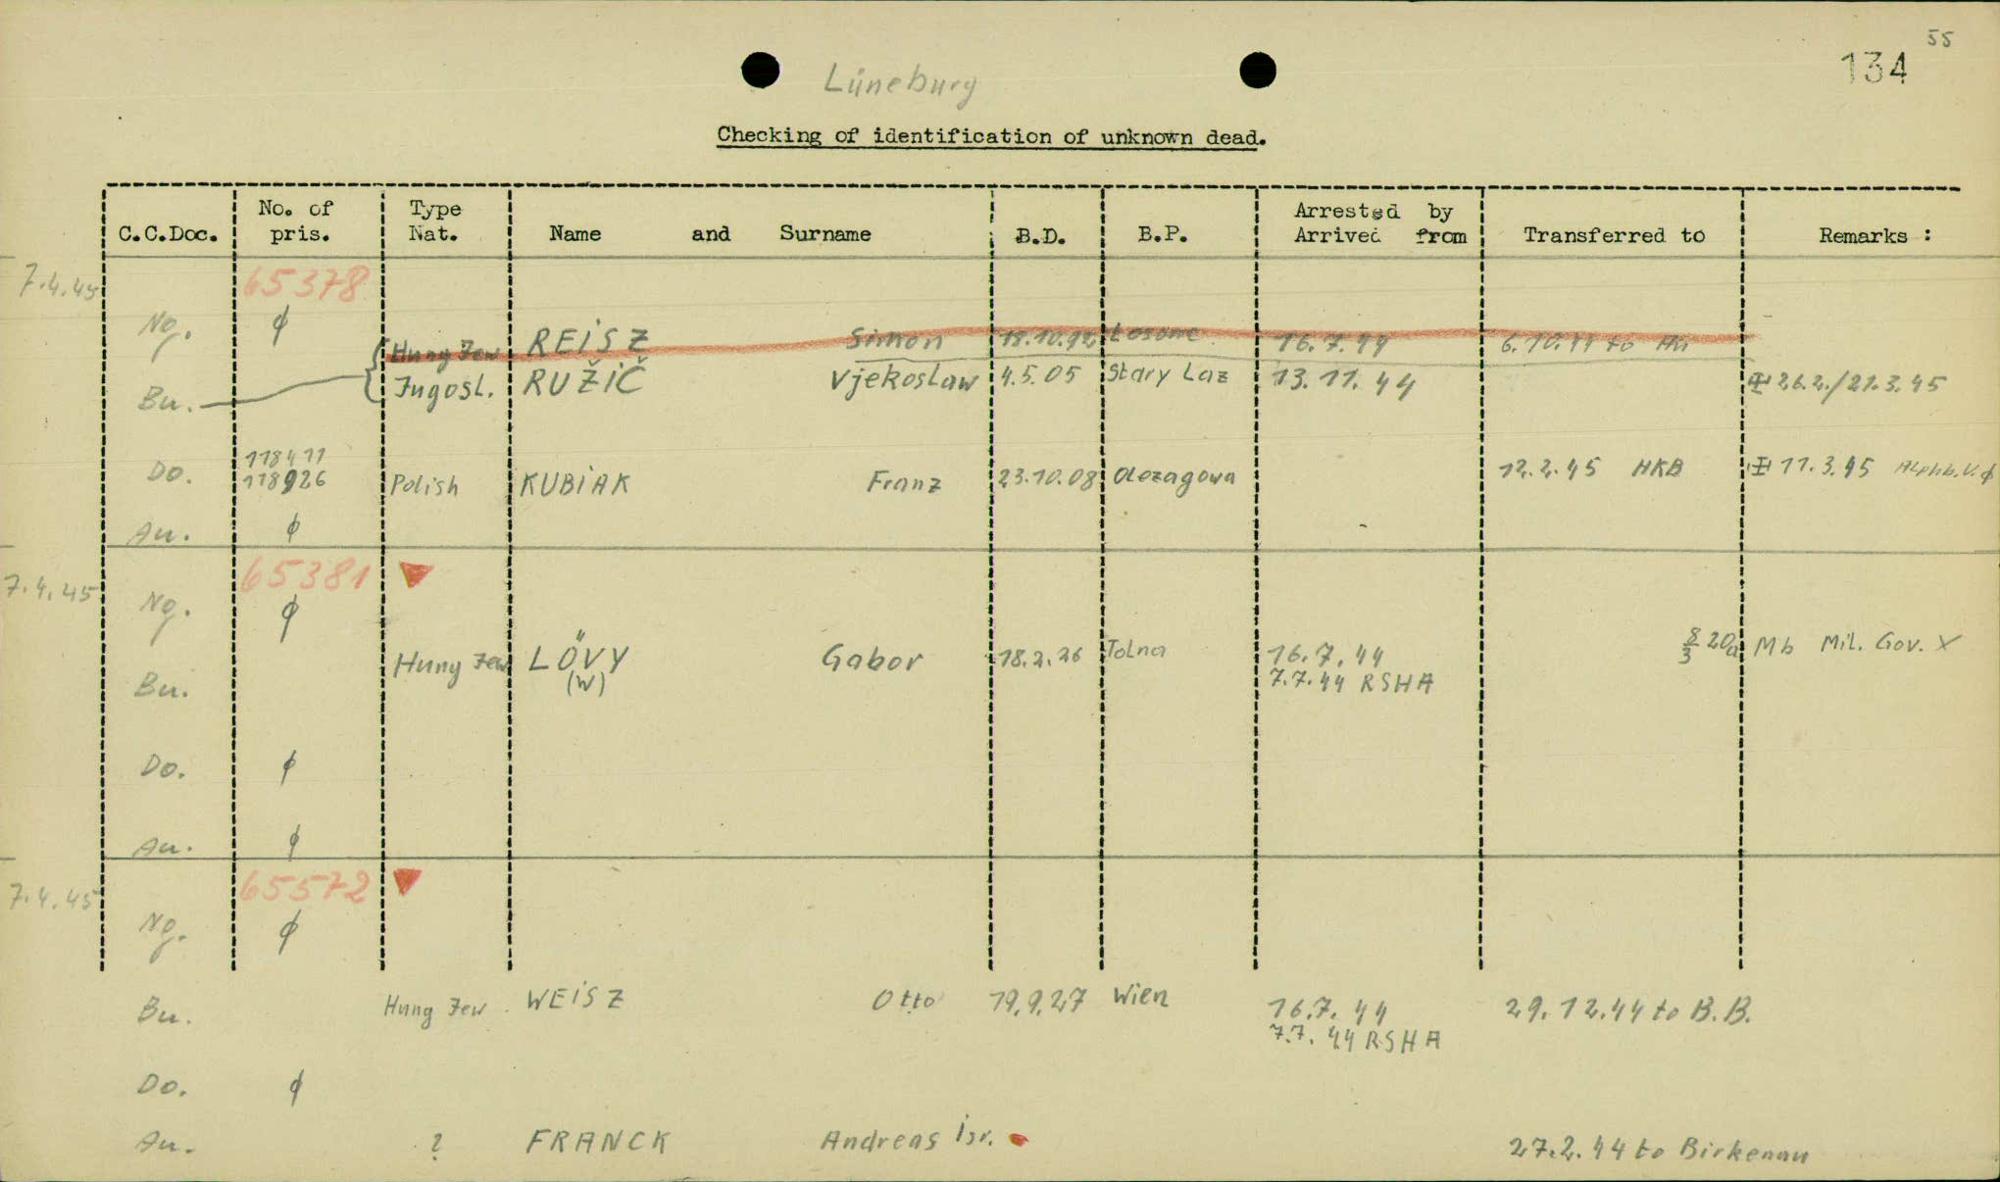 55
134
Lüneburg
Checking of identification of unknown dead.
C.C.Doc. No. of pris. Type Nat. Name and Surname B.D. B.P. Arrested by Arrived from Transferred to Remarks :
7.4.45 65378
Ng. ϕ
Hung Jew REISZ Simon 18.10.92 Losonc 16.7.44 6.10.44 to
Bu. Jugosl. RUŽIČ Vjekoslaw 4.5.05 Stary Laz 13.11.44 26.2./21.3.45
118411
Do. 118926 Polish KUBIAK Franz 23.10.08 12.2.45 HKB 11.3.45
Au. ϕ
7.4.45 65381
Ng. ϕ
Hung Jew LÖVY Gabor 18.2.26 Tolna 16.7.44 8/3 20a Mb Mil. Gov. X
(W) 7.7.44 RSHA
Bu.
Do. ϕ
Au. ϕ
7.4.45 65572
Ng. ϕ
Bu. Hung Jew WEISZ Otto 19.9.27 Wien 16.7.44 29.12.44 to B.B.
7.7.44 RSHA
Do. ϕ
Au. ? FRANCK Andreas Isr. 27.2.44 to Birkenau